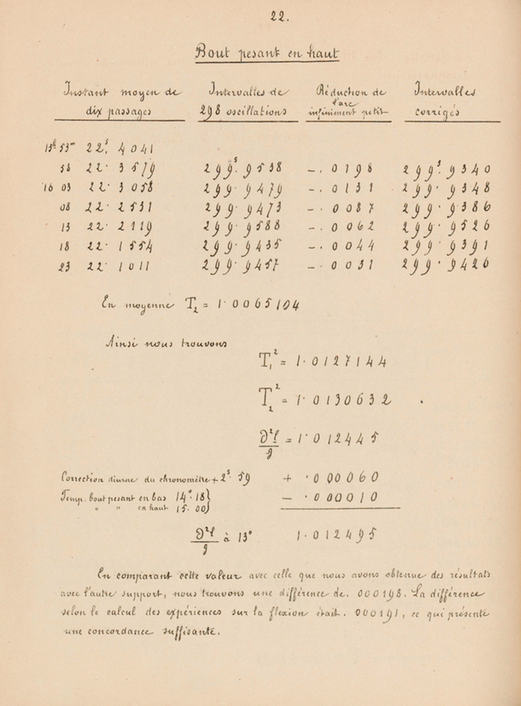 22.
Bout pesant en haut
Instant moyen de dix passages
Intervalles de 298 oscillations
Réduction de l'arc infiniment petit
Intervalles corrigés
15h 53m 22s. 4041
58 22. 3579 299s. 9538 -. 0198 299s. 9340
16 03 22. 3058 299. 9479 -. 0131 299. 9348
08 22. 2531 299. 9473 -. 0087 299. 9386
13 22. 2119 299. 9588 -. 0062 299. 9526
18 22. 1554 299. 9435 -. 0044 299. 9391
23 22. 1011 299. 9457 -. 0031 299. 9426
En moyenne T₂ = 1.0065104
Ainsi nous trouvons
T₁² = 1.0127144
T₂² = 1.0130632
∂²l/g = 1.012445
Correction diurne du chronomètre + 2s 59 + .000060
Temp. bout pesant en bas 14°.18 } - .000010
" " en haut 15.00 }
∂²l/g à 13° 1.012495
En comparant cette valeur avec celle que nous avons obtenue des résultats
avec l'autre support, nous trouvons une différence de .000198. La différence
selon le calcul des expériences sur la flexion était .000191, ce qui présente
une concordance suffisante.